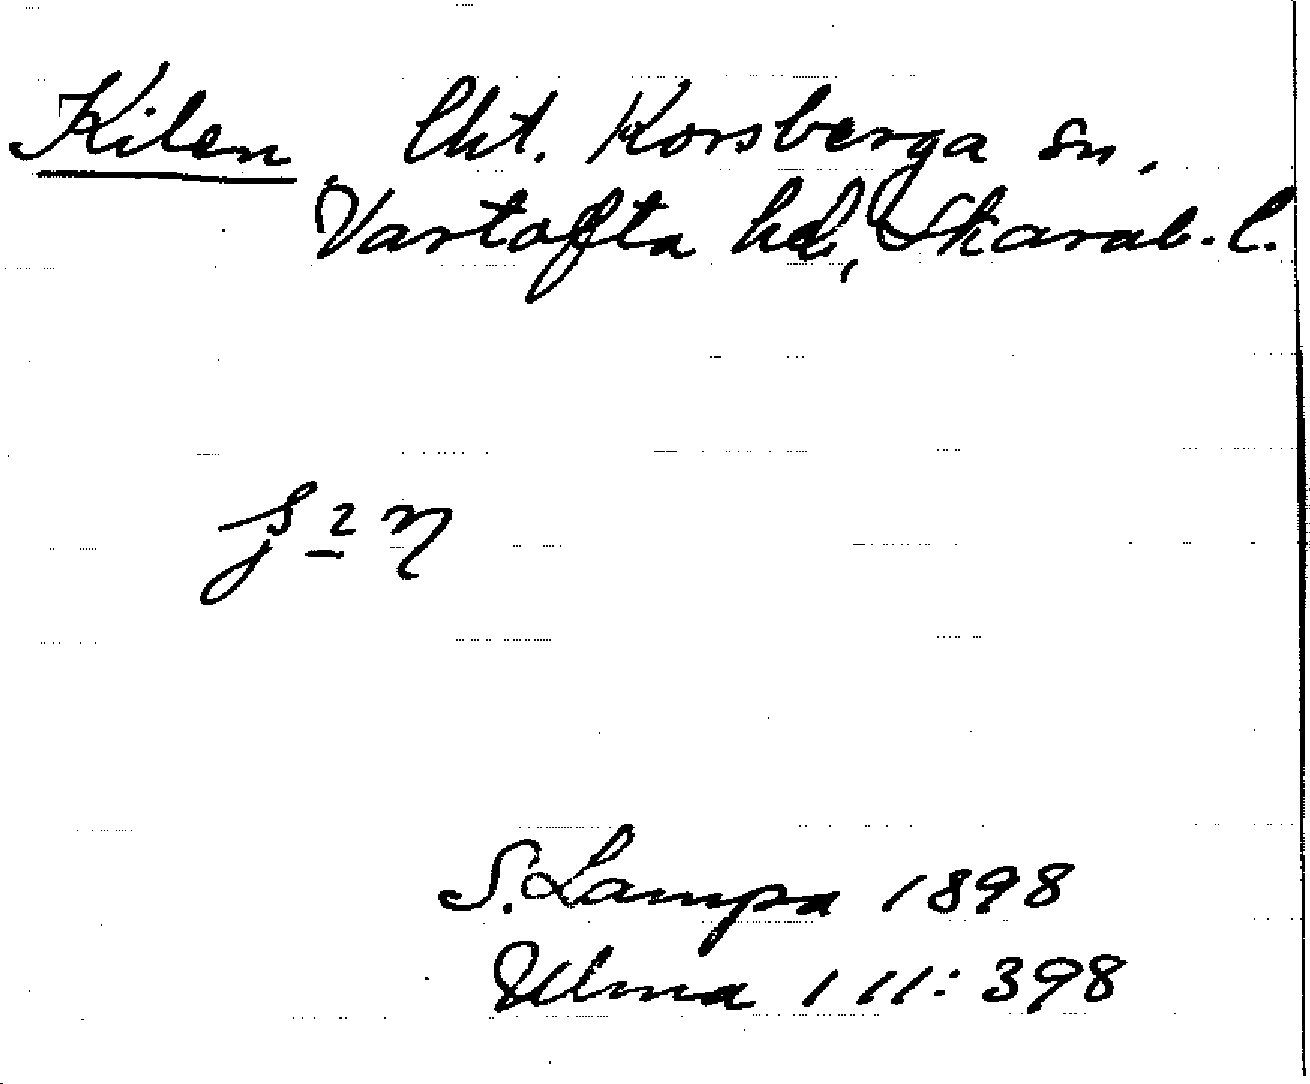 Kilen lht. Korsberga sn,
Vartofta hd, Skarab. l.
S. Lampa 1898
Ulma 111:398